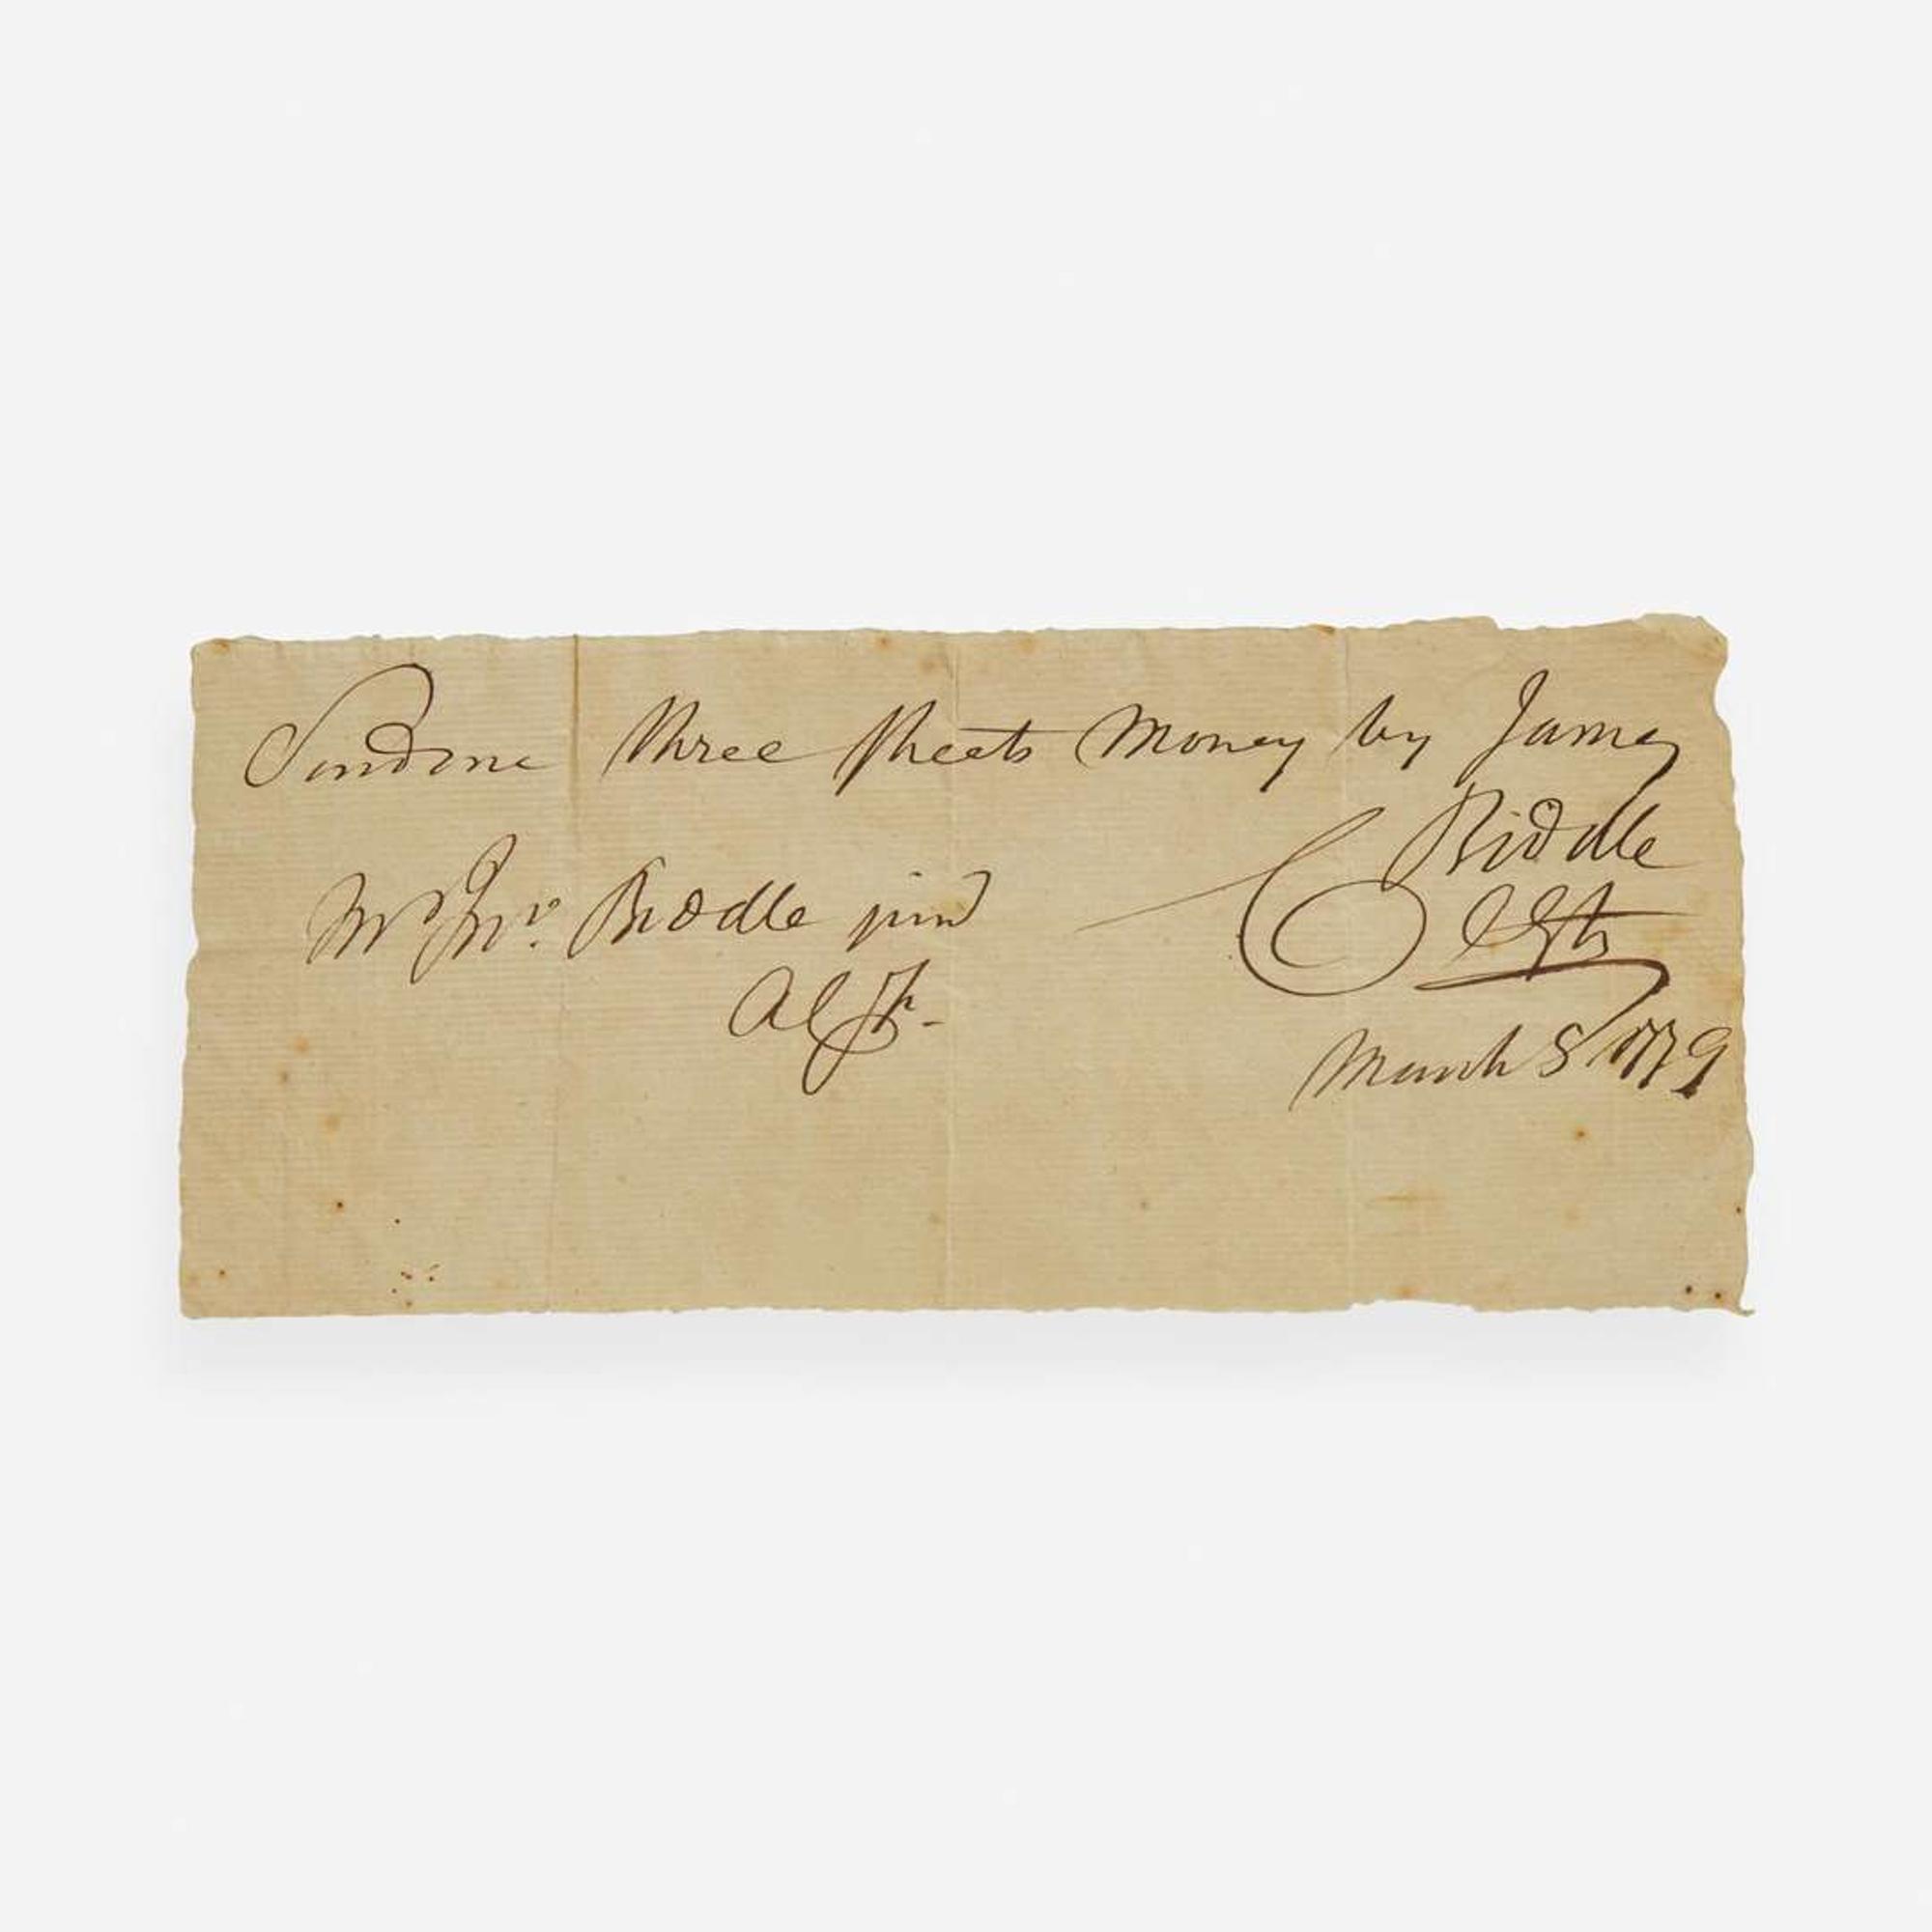 Send me three sheets Money by James
Biddle
Mr Jno. Biddle junr
March 8 1779